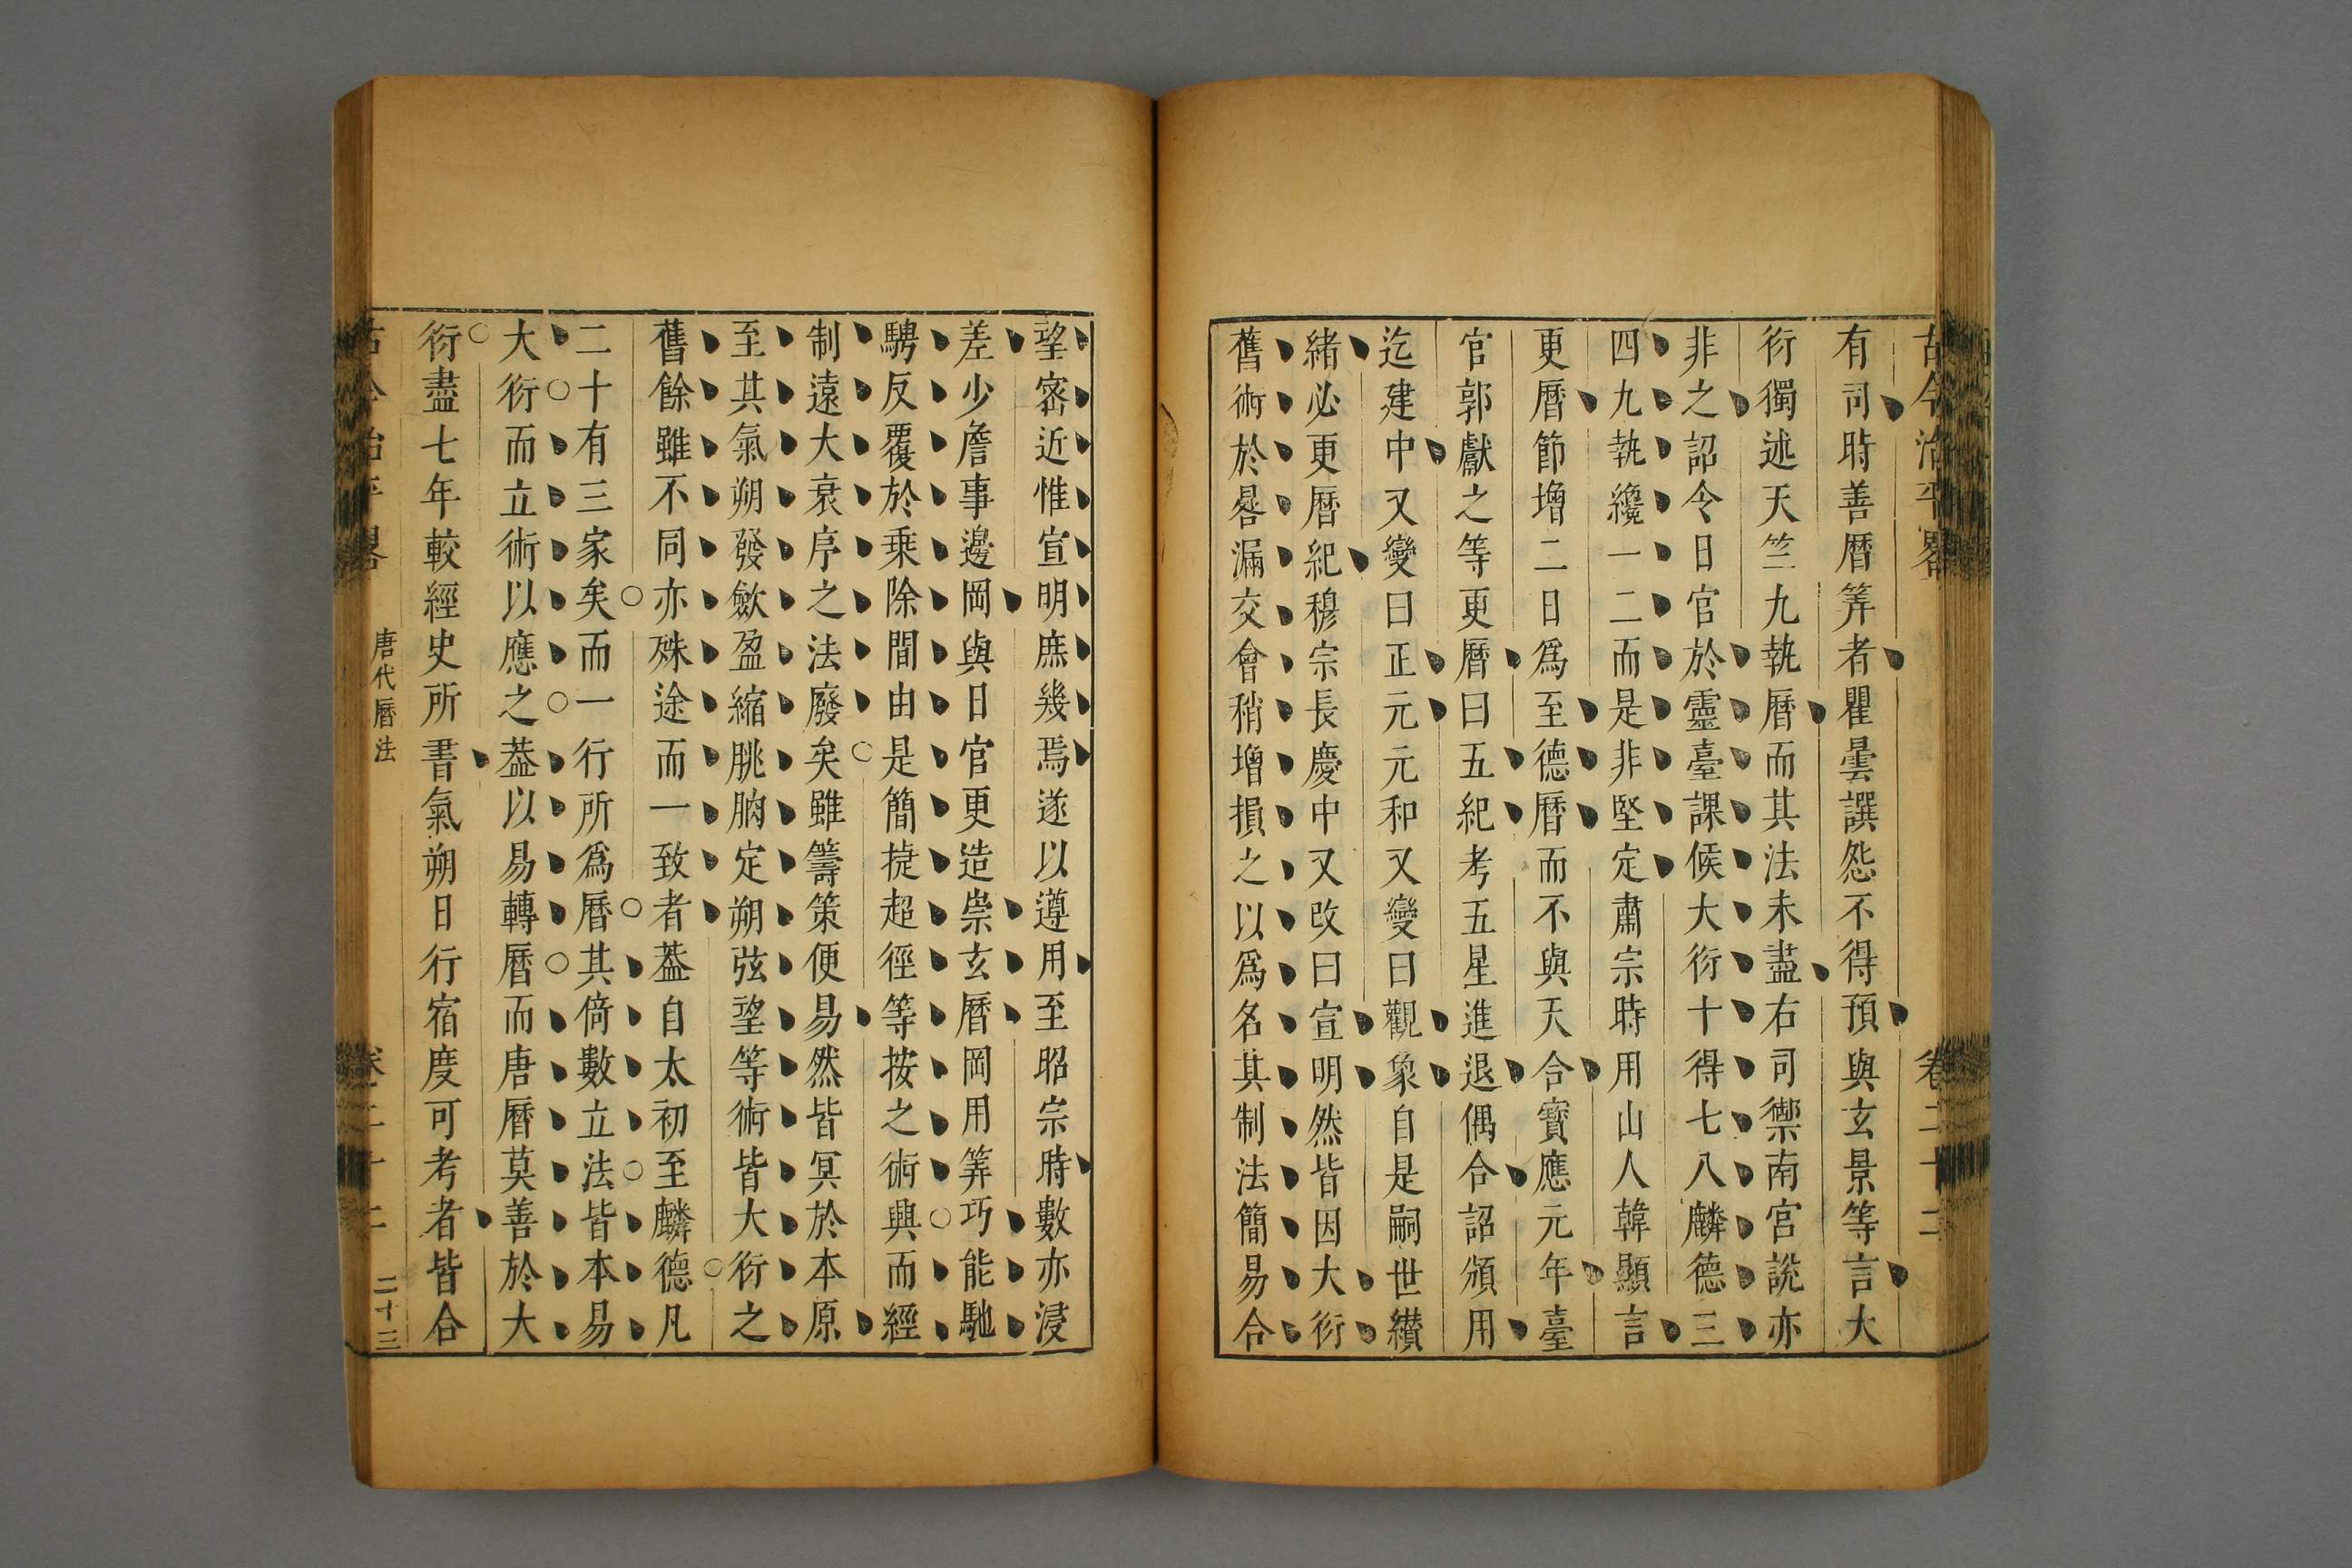 古今治平畧 卷二十二
有司時善曆筭者瞿曇譔怨不得預與玄景等言大
衍獨述天竺九執曆而其法未盡右司禦南宮說亦
非之詔令日官於靈臺課候大衍十得七八麟德三
四九執纔一二而是非堅定肅宗時用山人韓顯言
更曆節增二日爲至德曆而不與天合寶應元年臺
官郭獻之等更曆曰五紀考五星進退偶合詔頒用
迄建中又變曰正元元和又變曰觀象自是嗣世纘
緒必更曆紀穆宗長慶中又改曰宣明然皆因大衍
舊術於晷漏交會稍增損之以爲名其制法簡易合
望密近惟宣明庶幾焉遂以遵用至昭宗時數亦浸
差少詹事邊岡與日官更造崇玄曆岡用筭巧能馳
騁反覆於乗除間由是簡捷超徑等按之術興而經
制遠大衰序之法廢矣雖籌策便易然皆冥於本原
至其氣朔發斂盈縮朓朒定朔弦望等術皆大衍之
舊餘雖不同亦殊途而一致者葢自太初至麟德凡
二十有三家矣而一行所爲曆其倚數立法皆本易
大衍而立術以應之葢以易轉曆而唐曆莫善於大
衍盡七年較經史所書氣朔日行宿度可考者皆合
古今治平畧 唐代曆法 卷二十二 二十三